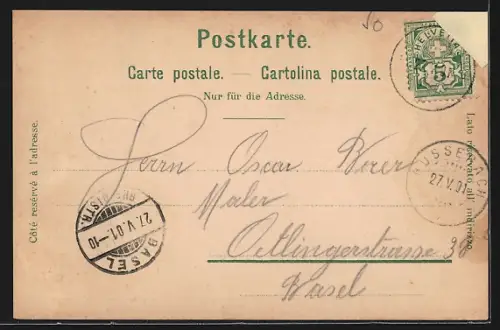 50
Postkarte.
HELVETIA
5
Carte postale. — Cartolina postale.
Nur für die Adresse.
Côté reservé à l'adresse.
Lato riservato all' indirizzo.
Herrn Oscar
Maler
Oetlingerstrasse 38
Basel
27.V.01
27.V.01.-10
BASEL